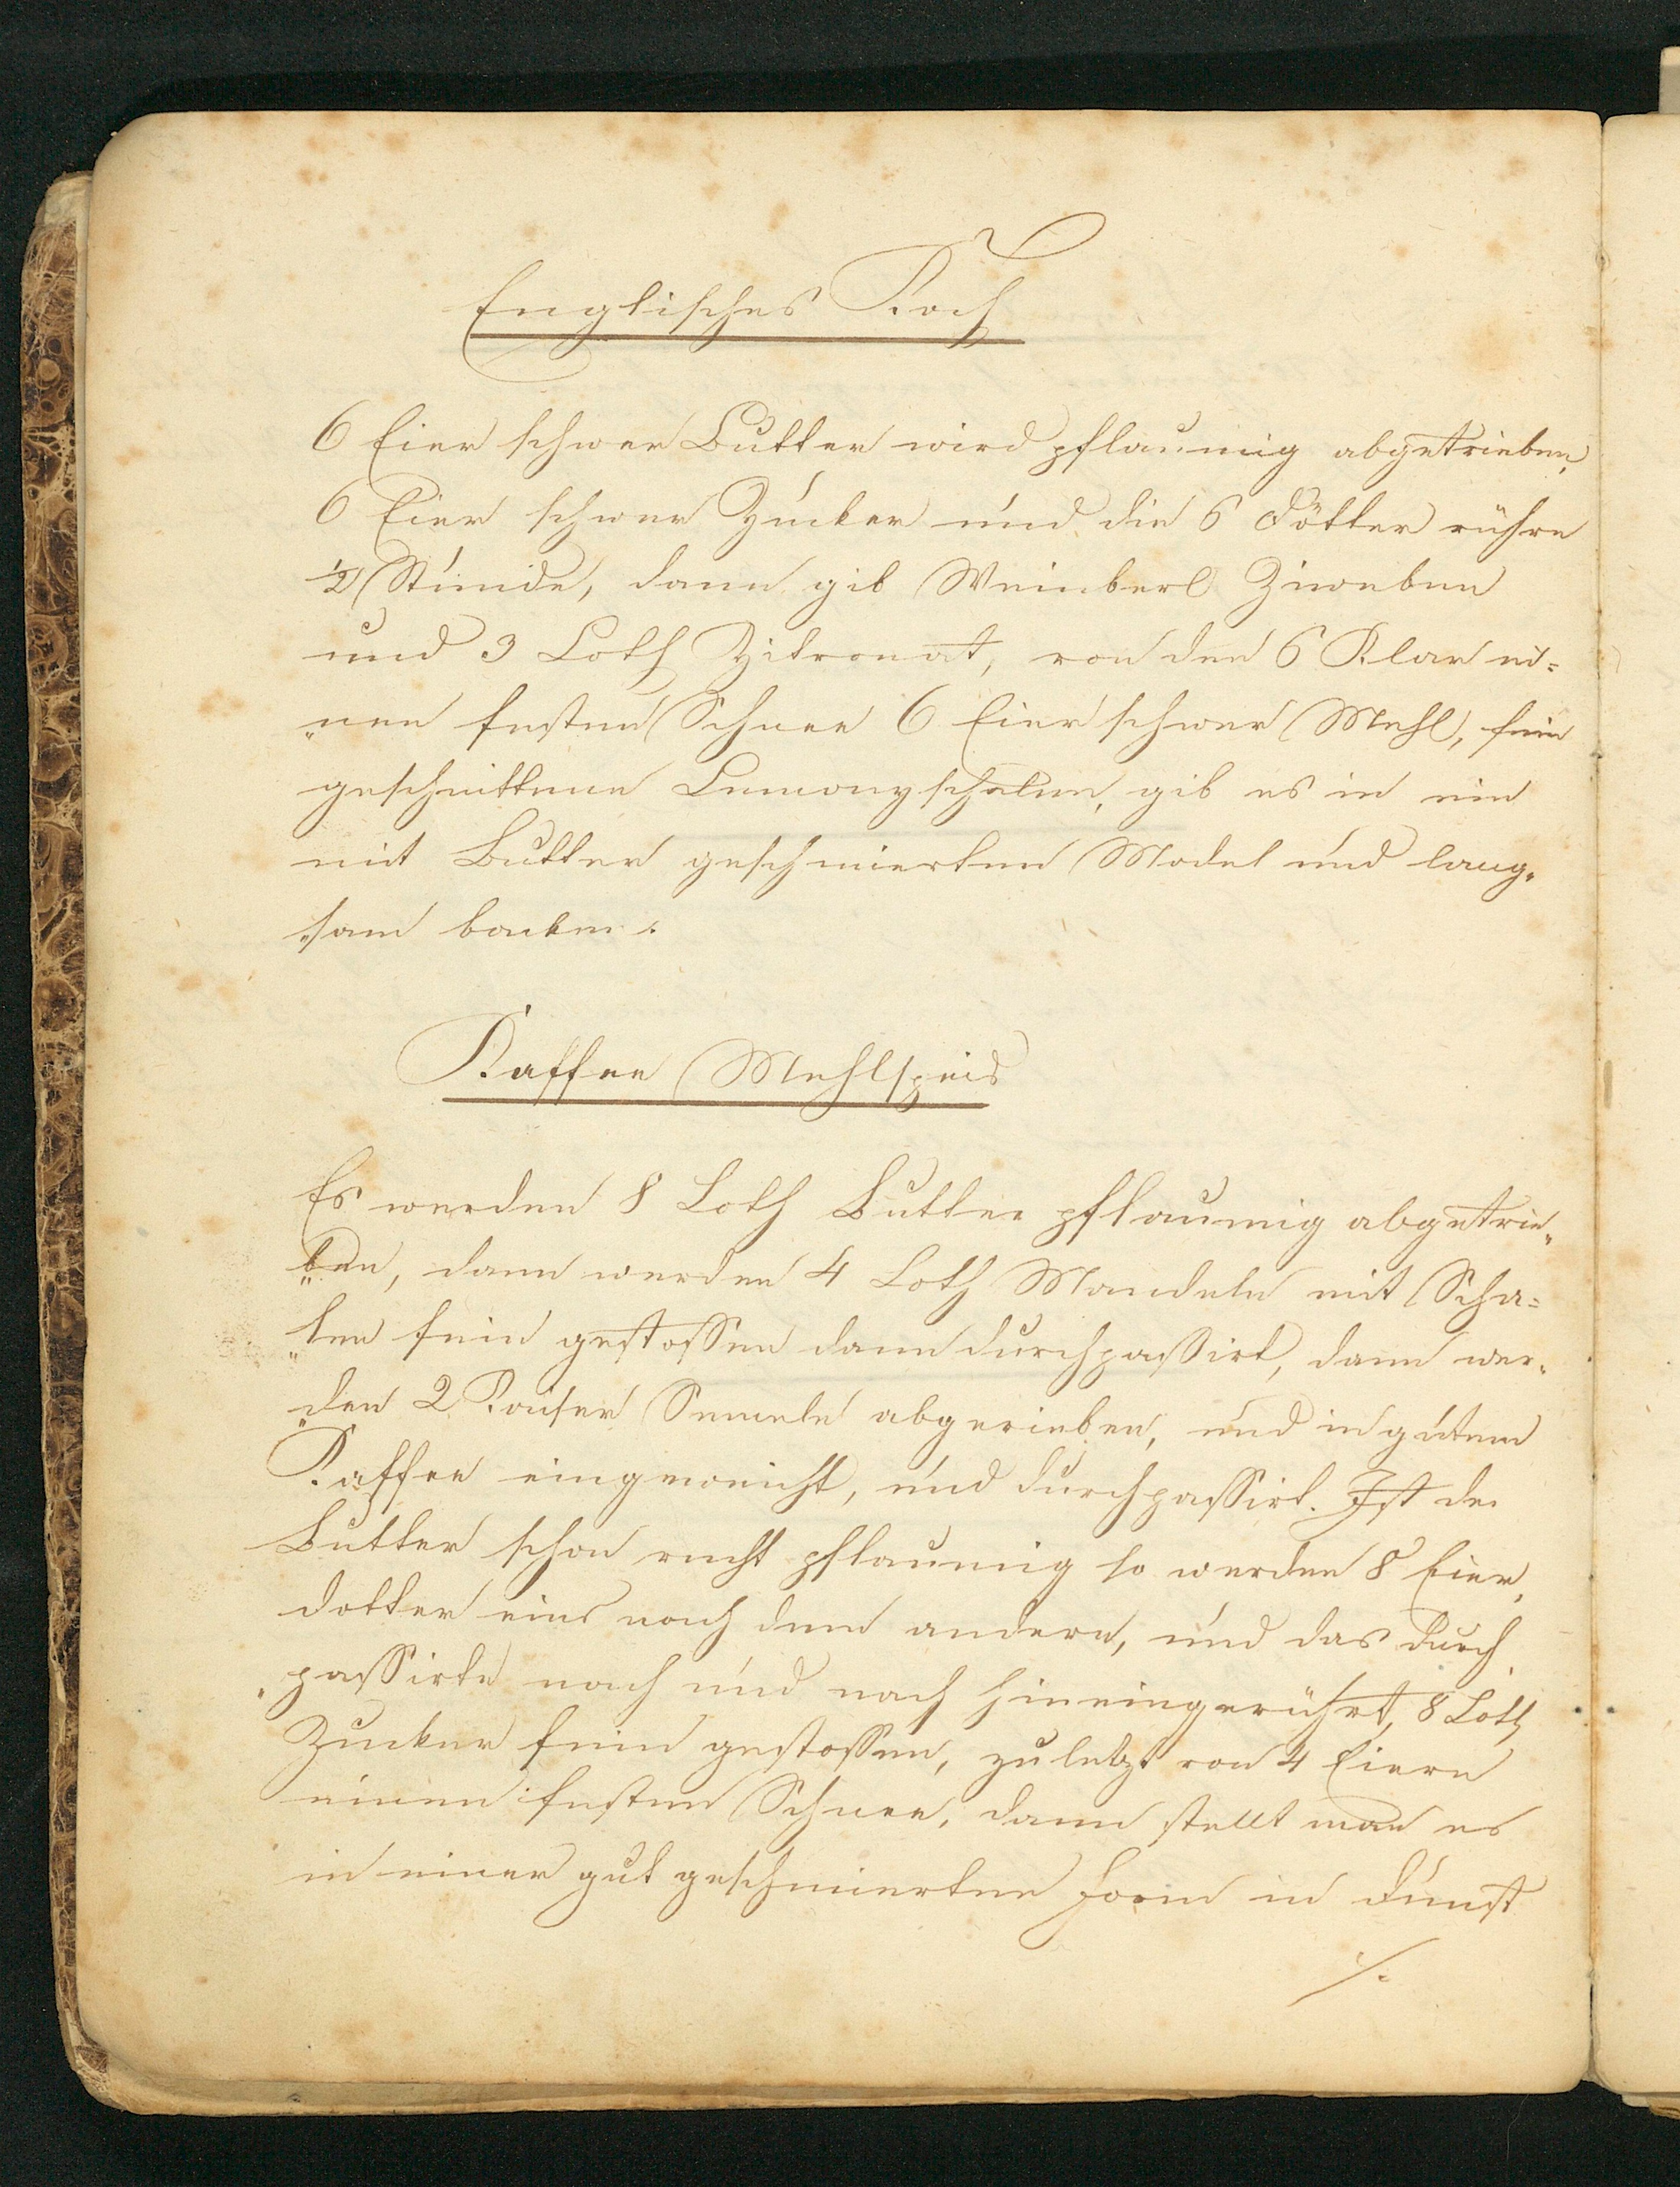 Englisches Koch
6 Eier schwer Butter wird pflaumig abgetrieben,
6 Eier schwer Zucker und die 6 Dötter rühre
½ Stunde, dann gib Weinberl Ziweben
und 3 Loth Zitronat, von den 6 Klar ei=
„nen festen Schnee 6 Eier schwer Mehl, fein
geschnittene Lemonyschalen, gib es in ein
mit Butter geschmierten Model und lang„
„sam backen.
Kaffee Mehlspeis
Es werden 8 Loth Butter pflaumig abgetrie„
„ben, dann werden 4 Loth Mandeln mit Scha=
„len fein gestossen dann durchpassirt, dann wer„
„den 2 Kaiser Semeln abgerieben, und in gutem
Kaffee eingeweicht, und durchpassirt. Ist der
Butter schon recht pflaumig so werden 8 Eier„
dotter eins nach dem andern, und das durch„
„passirte nach und nach hineingerührt, 8 Loth
Zucker fein gestossen, zuletzt von 4 Eiern
einen festen Schnee, dann stellt man es
in einer gut geschmierten Form in Dunst
./.